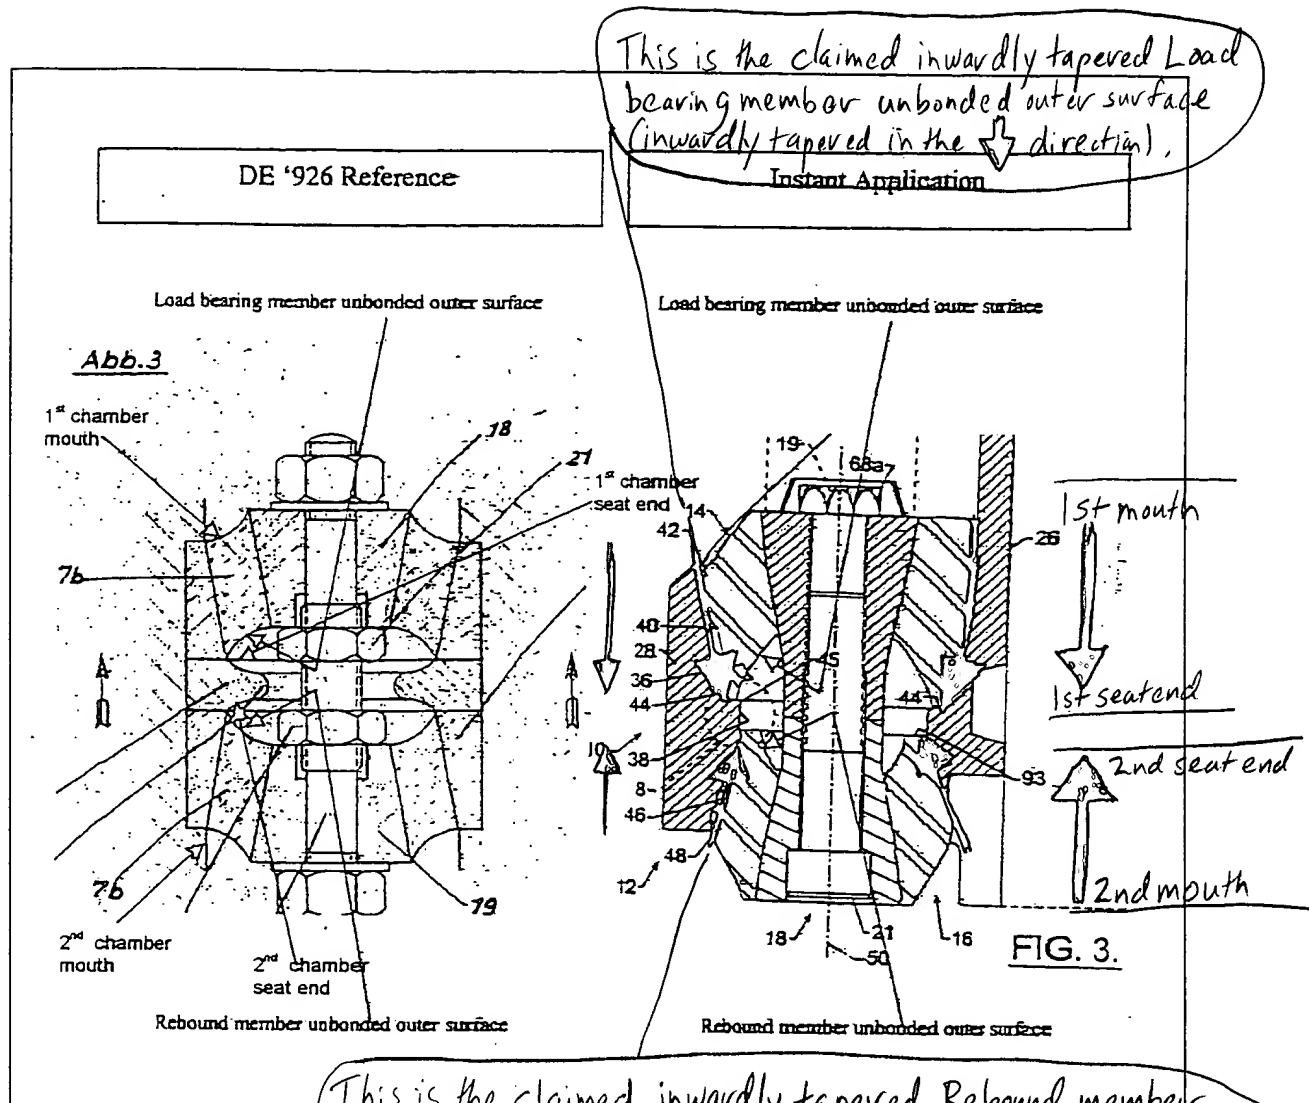 This is the claimed inwardly tapered Load
bearing member unbonded outer surface
(inwardly tapered in the direction).
DE '926 Reference
Instant Application
Load bearing member unbonded outer surface
Load bearing member unbonded outer surface
Abb.3
1st chamber
mouth
18
21
1st chamber
seat end
7b
7b
19
2nd chamber
mouth
2nd chamber
seat end
Rebound member unbonded outer surface
19
68a
14
42
26
40
28
36
45
44
44
10
38
93
8
46
48
12
18
21
16
50
FIG. 3.
1st mouth
1st seat end
2nd seat end
2nd mouth
Rebound member unbonded outer surface
This is the claimed inwardly tapered Rebound member